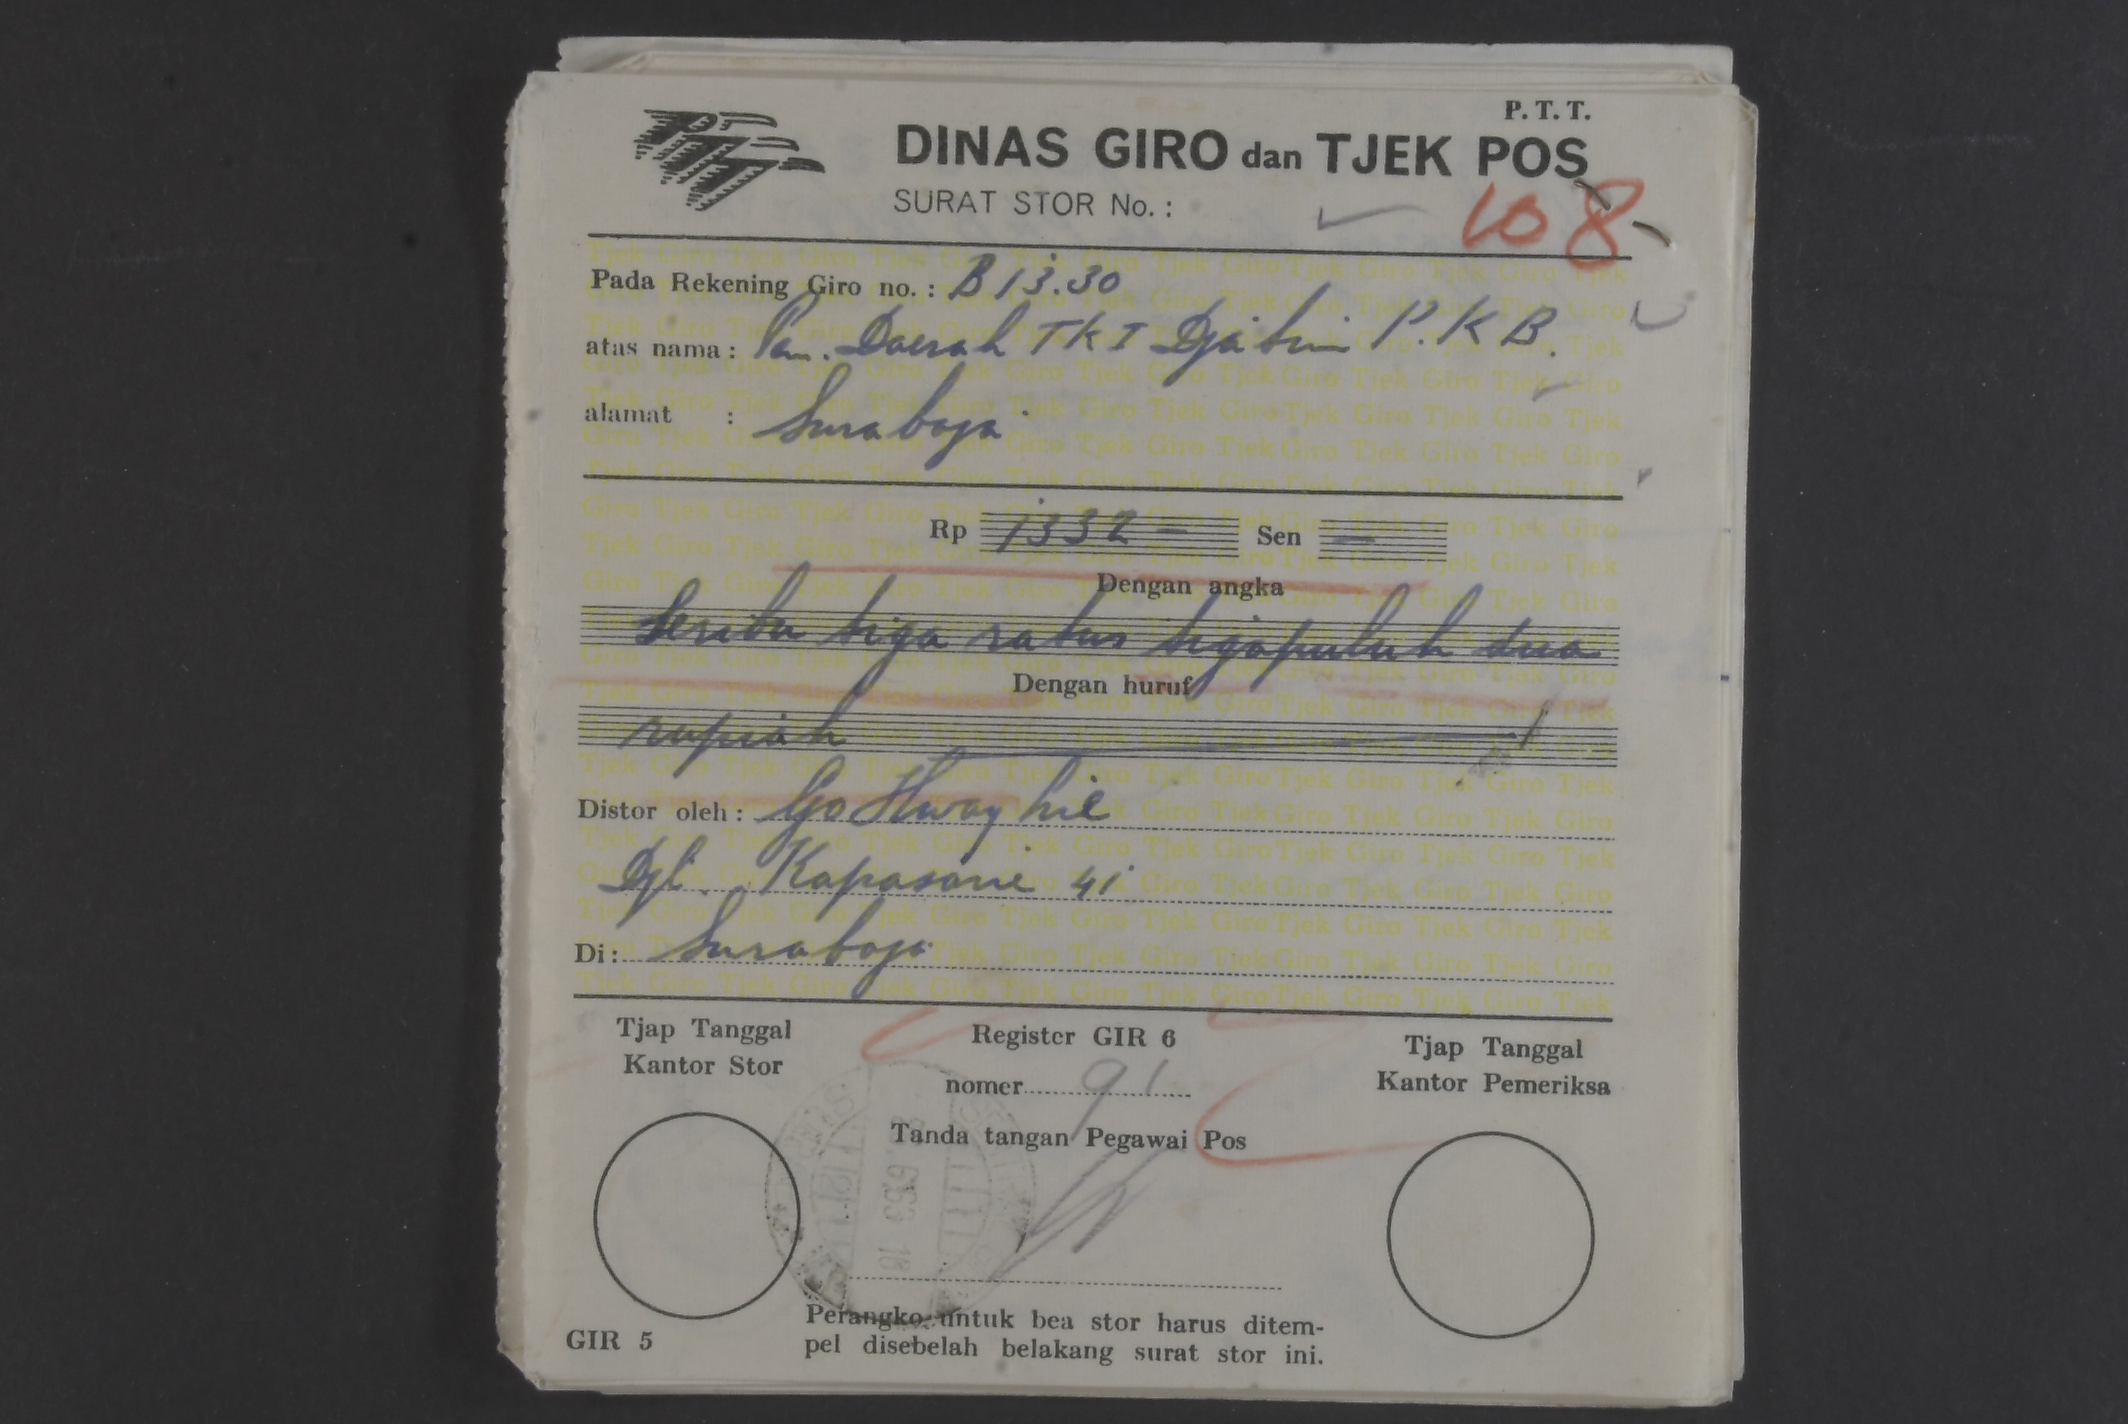 P. T. T.
DINAS GIRO dan TJEK POS
SURAT STOR No. :
108
Pada Rekening Giro no. : B 13.30
atas nama : Pan. Daerah TKI Djatim P.K B.
alamat : Surabaja
Rp 1332 - Sen —
Dengan angka
Seribu tiga ratus tigapuluh dua
Dengan huruf
rupiah
Distor oleh : Go Hway hie
Djl. Kapasarie 41
Di : Surabaja
Tjap Tanggal
Kantor Stor
Register GIR 6
nomer 91
Tjap Tanggal
Kantor Pemeriksa
Tanda tangan Pegawai Pos
Perangko untuk bea stor harus ditem-
pel disebelah belakang surat stor ini.
GIR 5